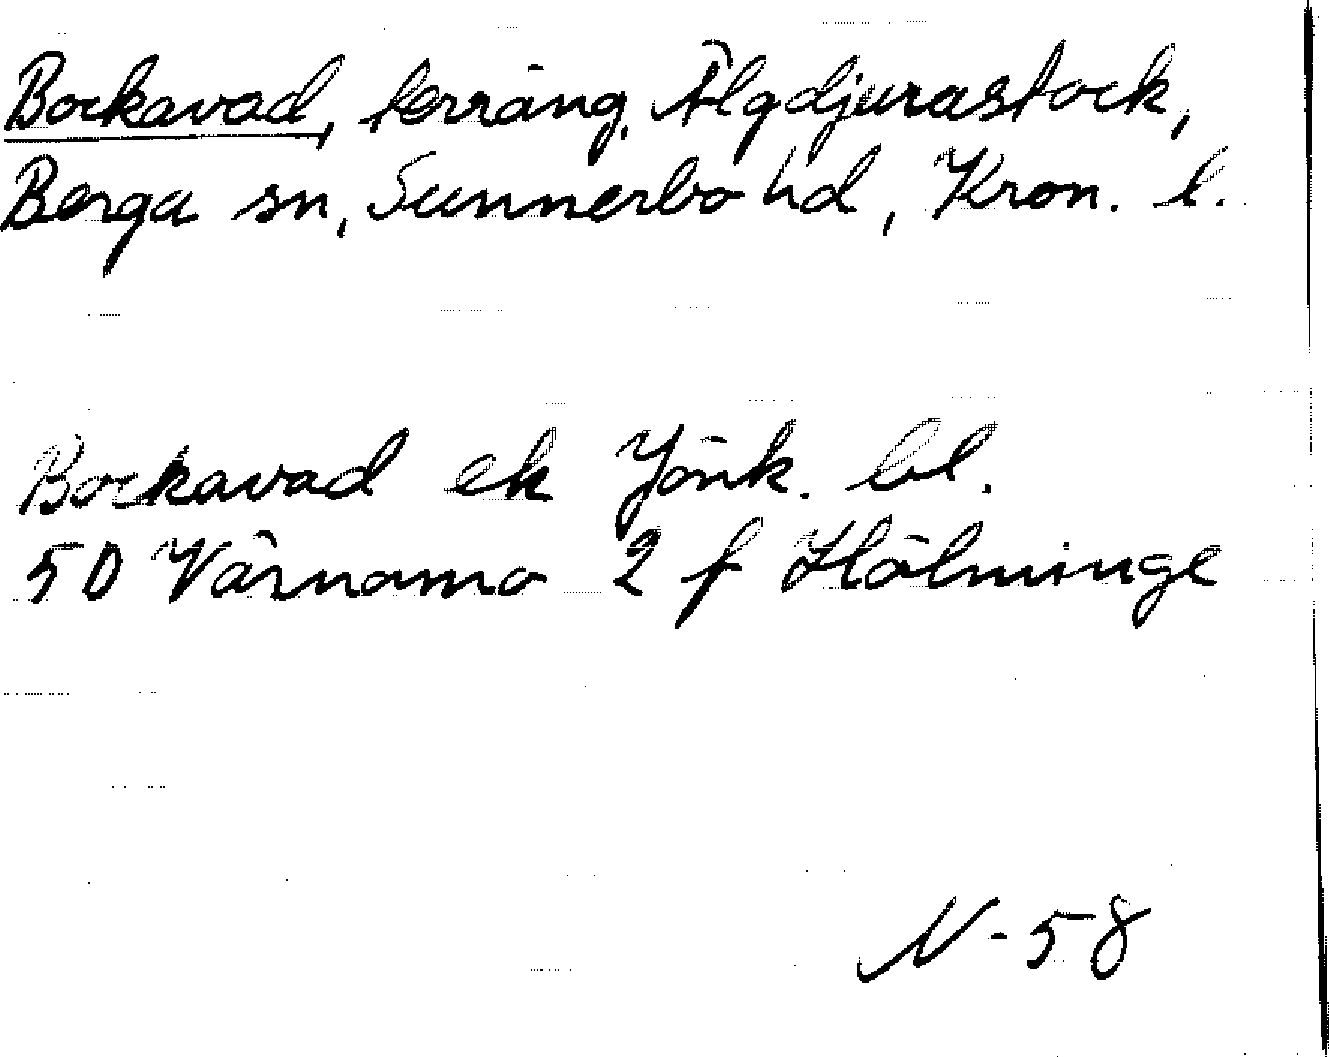 Bockavad, terräng, Älgdjurastock,
Berga sn, Sunnerbo hd, Kron. l.
Bockavad ek Jönk. bl.
5D Värnamo 2 f Hölminge
N-58